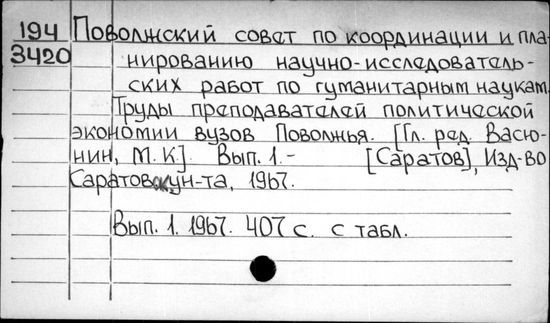 194 Поволжский совет по координации и пла-
3420 нированию научно-исследователь-
ских работ по гуманитарным наукам.
Труды преподавателей политической
экономии вузов Поволжья. [Гл. ред. Васю-
нин, М.К.]. Вып. 1.- [Саратов], Изд-во
Саратовск. ун-та, 1967.
Вып. 1. 1967. 407 с. с табл.